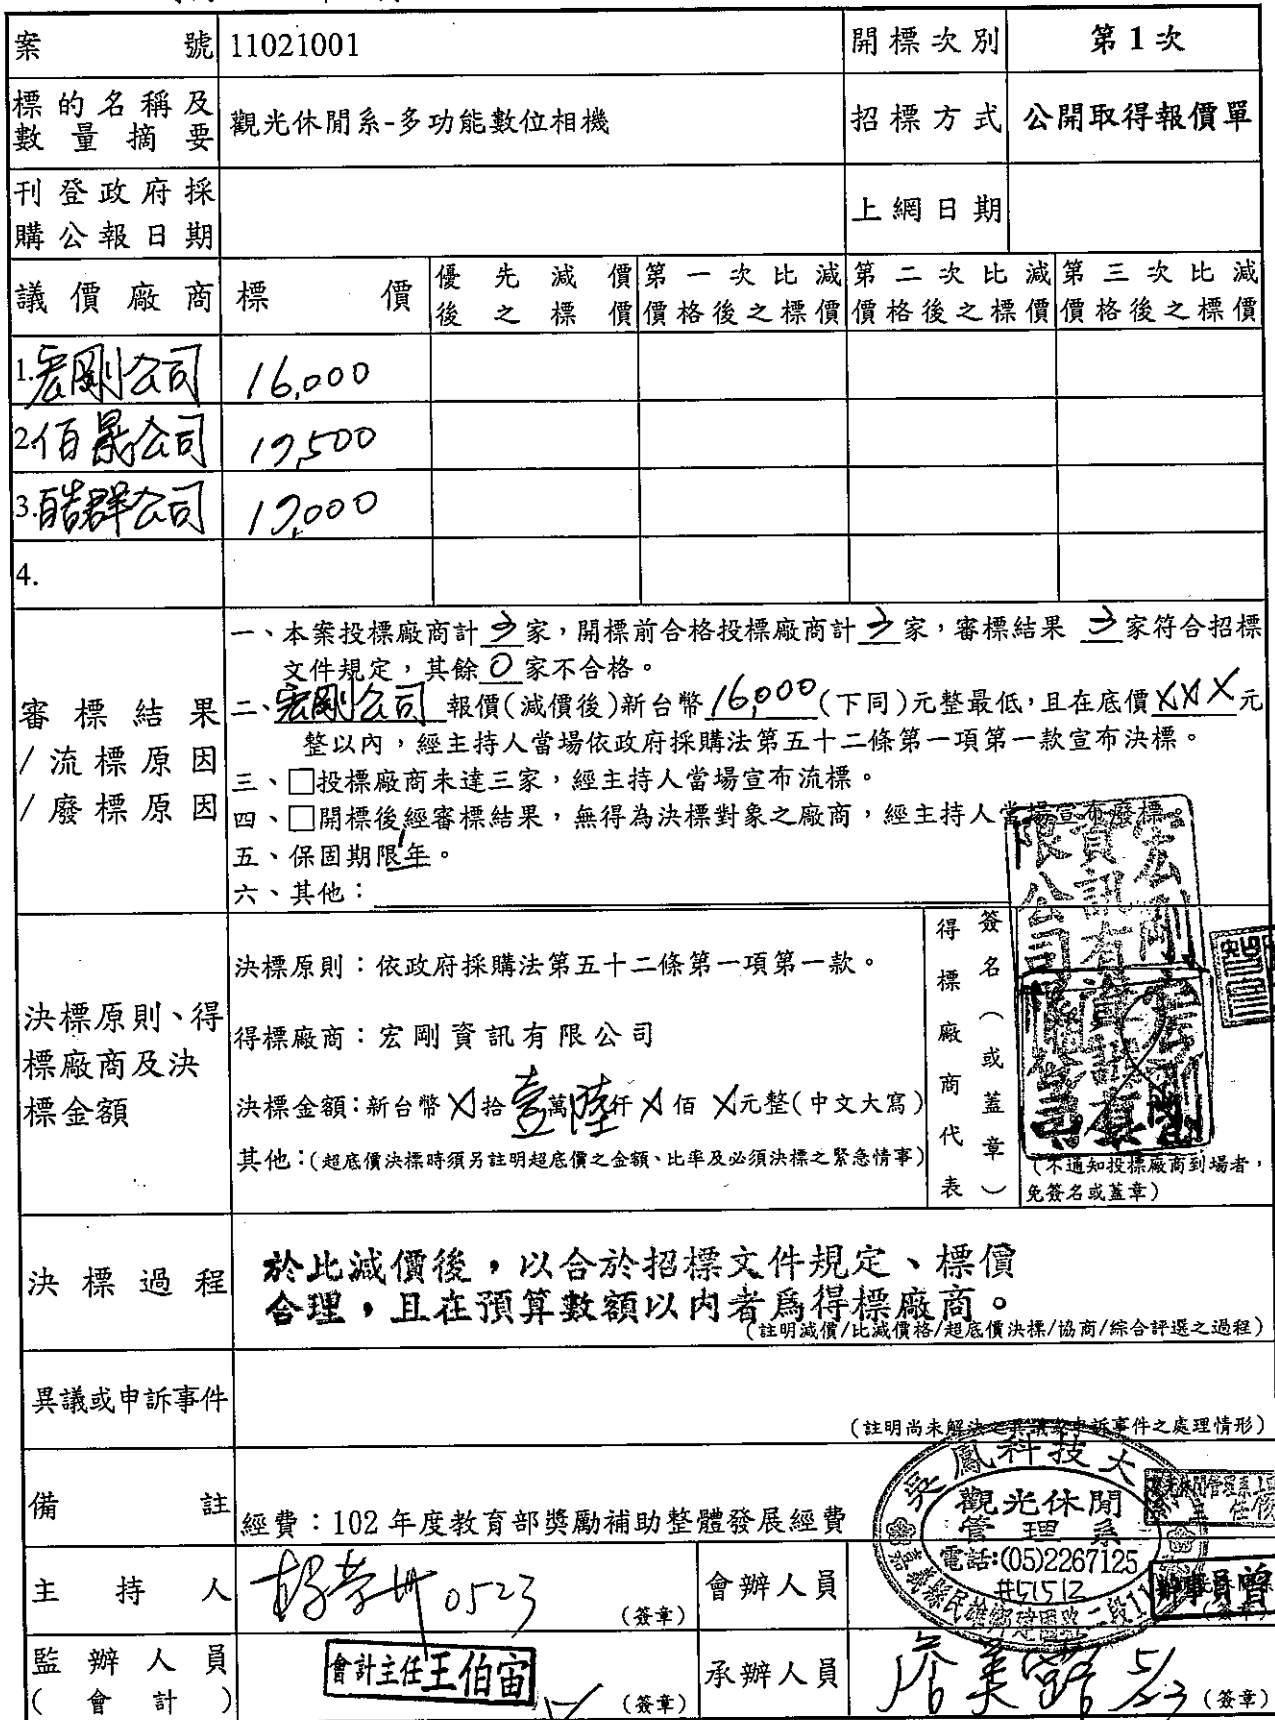 案號 11021001 開標次別 第1次
標的名稱及數量摘要 觀光休閒系-多功能數位相機 招標方式 公開取得報價單
刊登政府採購公報日期 上網日期
議價廠商 標價 優先減價後之標價 第一次比減價格後之標價 第二次比減價格後之標價 第三次比減價格後之標價
1.宏剛公司 16,000
2.佰晟公司 17,500
3.皓群公司 17,000
4.
審標結果/流標原因/廢標原因
一、本案投標廠商計3家,開標前合格投標廠商計3家,審標結果 3家符合招標
文件規定,其餘0家不合格。
二、宏剛公司 報價(減價後)新台幣16,000(下同)元整最低,且在底價XXX元
整以內,經主持人當場依政府採購法第五十二條第一項第一款宣布決標。
三、□投標廠商未達三家,經主持人當場宣布流標。
四、□開標後經審標結果,無得為決標對象之廠商,經主持人當場宣布廢標。
五、保固期限1年。
六、其他:
決標原則、得標廠商及決標金額
決標原則:依政府採購法第五十二條第一項第一款。
得標廠商:宏剛資訊有限公司
決標金額:新台幣X拾壹萬陸仟X佰X元整(中文大寫)
其他:(超底價決標時須另註明超底價之金額、比率及必須決標之緊急情事)
得標廠商代表 簽名(或蓋章)
宏剛資訊有限公司
(不通知投標廠商到場者,
免簽名或蓋章)
決標過程
於比減價後,以合於招標文件規定、標價
合理,且在預算數額以內者為得標廠商。
(註明減價/比減價格/超底價決標/協商/綜合評選之過程)
異議或申訴事件
(註明尚未解決之異議或申訴事件之處理情形)
備註 經費:102年度教育部獎勵補助整體發展經費
吳鳳科技大
觀光休閒
管理系
電話:(05)2267125
#51512
主持人 0523 (簽章) 會辦人員 辦事員曾 (簽章)
監辦人員(會計) 會計主任王伯宙 (簽章) 承辦人員 5/23 (簽章)